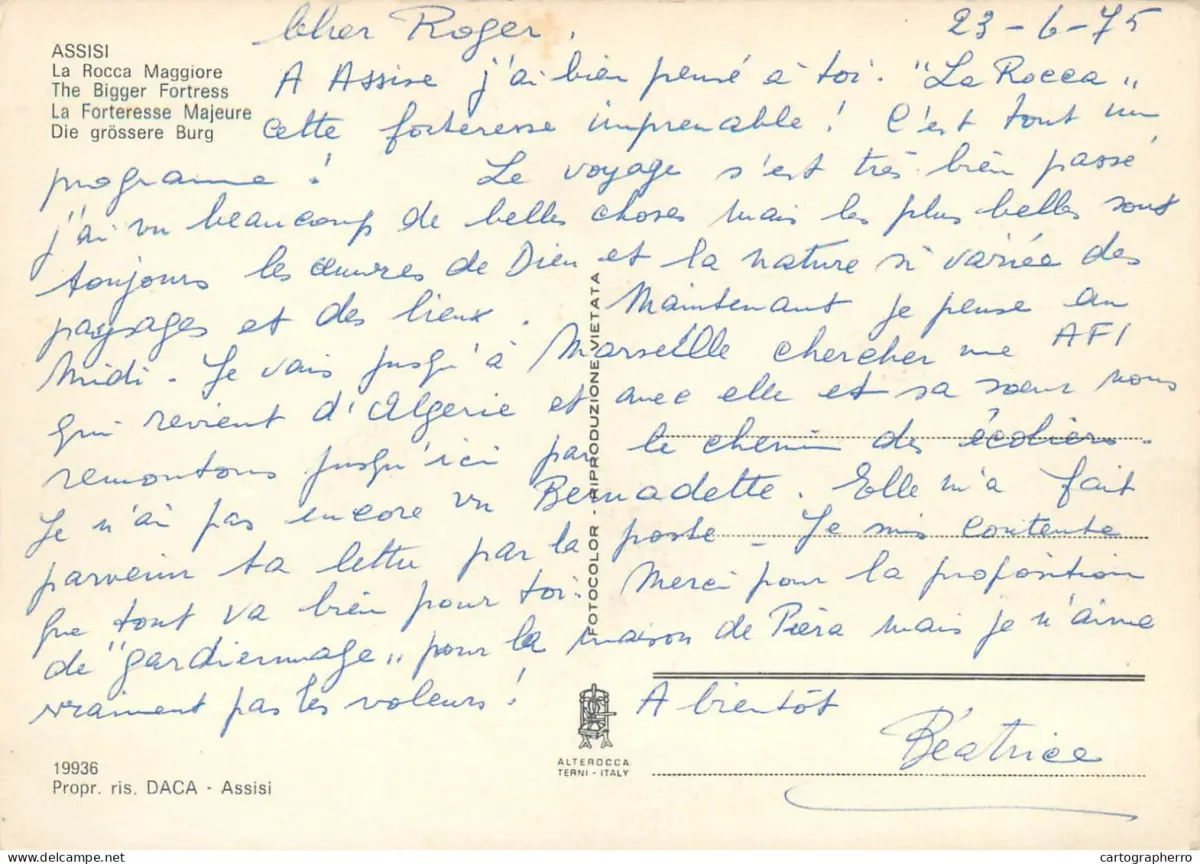 ASSISI
La Rocca Maggiore
The Bigger Fortress
La Forteresse Majeure
Die grössere Burg
23-6-75
Cher Roger,
A Assise j'ai bien pensé à toi. "La Rocca"
cette forteresse imprenable ! C'est tout un
programme ! Le voyage s'est très bien passé
j'ai vu beaucoup de belles choses mais les plus belles sont
toujours les œuvres de Dieu et la nature si variée des
paysages et des lieux. Maintenant je pense au
Midi. Je vais jusqu'à Marseille chercher une AFI
qui revient d'Algérie et avec elle et sa sœur nous
remontons jusqu'ici par le chemin des écoliers.
Je n'ai pas encore vu Bernadette. Elle m'a fait
parvenir ta lettre par la poste. Je suis contente
que tout va bien pour toi. Merci pour la proposition
de "gardiennage" pour la maison de Piéra mais je n'aime
vraiment pas les voleurs !
A bientôt
Béatrice
FOTOCOLOR - RIPRODUZIONE VIETATA
ALTEROCCA
TERNI - ITALY
19936
Propr. ris. DACA - Assisi
cartographerro